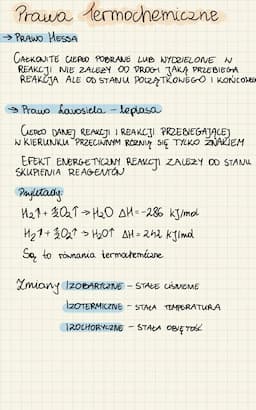 Prawa Termochemiczne
→ PRAWO HESSA
CAŁKOWITE CIEPŁO POBRANE LUB WYDZIELONE W
REAKCJI NIE ZALEŻY OD DROGI JAKĄ PRZEBIEGA
REAKCJA ALE OD STANU POCZĄTKOWEGO I KOŃCOWEGO
→ Prawo Lavosiela - laplasa
CIEPŁO DANEJ REAKCJI I REAKCJI PRZEBIEGAJĄCEJ
W KIERUNKU PRZECIWNYM RÓŻNIĄ SIĘ TYLKO ZNAKIEM
EFEKT ENERGETYCZNY REAKCJI ZALEŻY OD STANU
SKUPIENIA REAGENTÓW
Przykłady:
H₂↑ + ½O₂↑ → H₂O ΔH = -286 kJ/mol
H₂↑ + ½O₂↑ → H₂O↑ ΔH = 242 kJ/mol
Są to równania termochemiczne
Zmiany IZOBARYCZNE - STAŁE CIŚNIENIE
IZOTERMICZNE - STAŁA TEMPERATURA
IZOCHORYCZNE - STAŁA OBJĘTOŚĆ